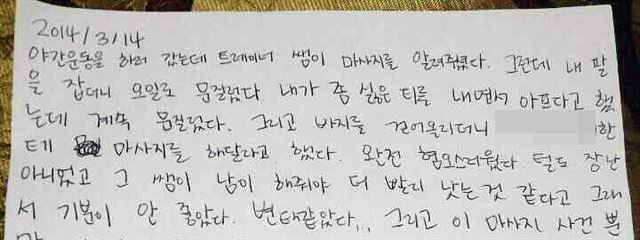 2014/3/14
야간운동을 하러 갔는데 트레이너 쌤이 마사지를 알려줬다. 그런데 내 팔
을 잡더니 오일로 문질렀다. 내가 좀 싫은 티를 내면서 아프다고 했
는데 계속 문질렀다. 그리고 바지를 걷어올리더니 한
테 마사지를 해달라고 했다. 완전 혐오스러웠다. 털도 장난
아니었고 그 쌤이 남이 해줘야 더 빨리 낫는것 같다고 그래
서 기분이 안 좋았다. 변태같았다.. 그리고 이 마사지 사건 뿐